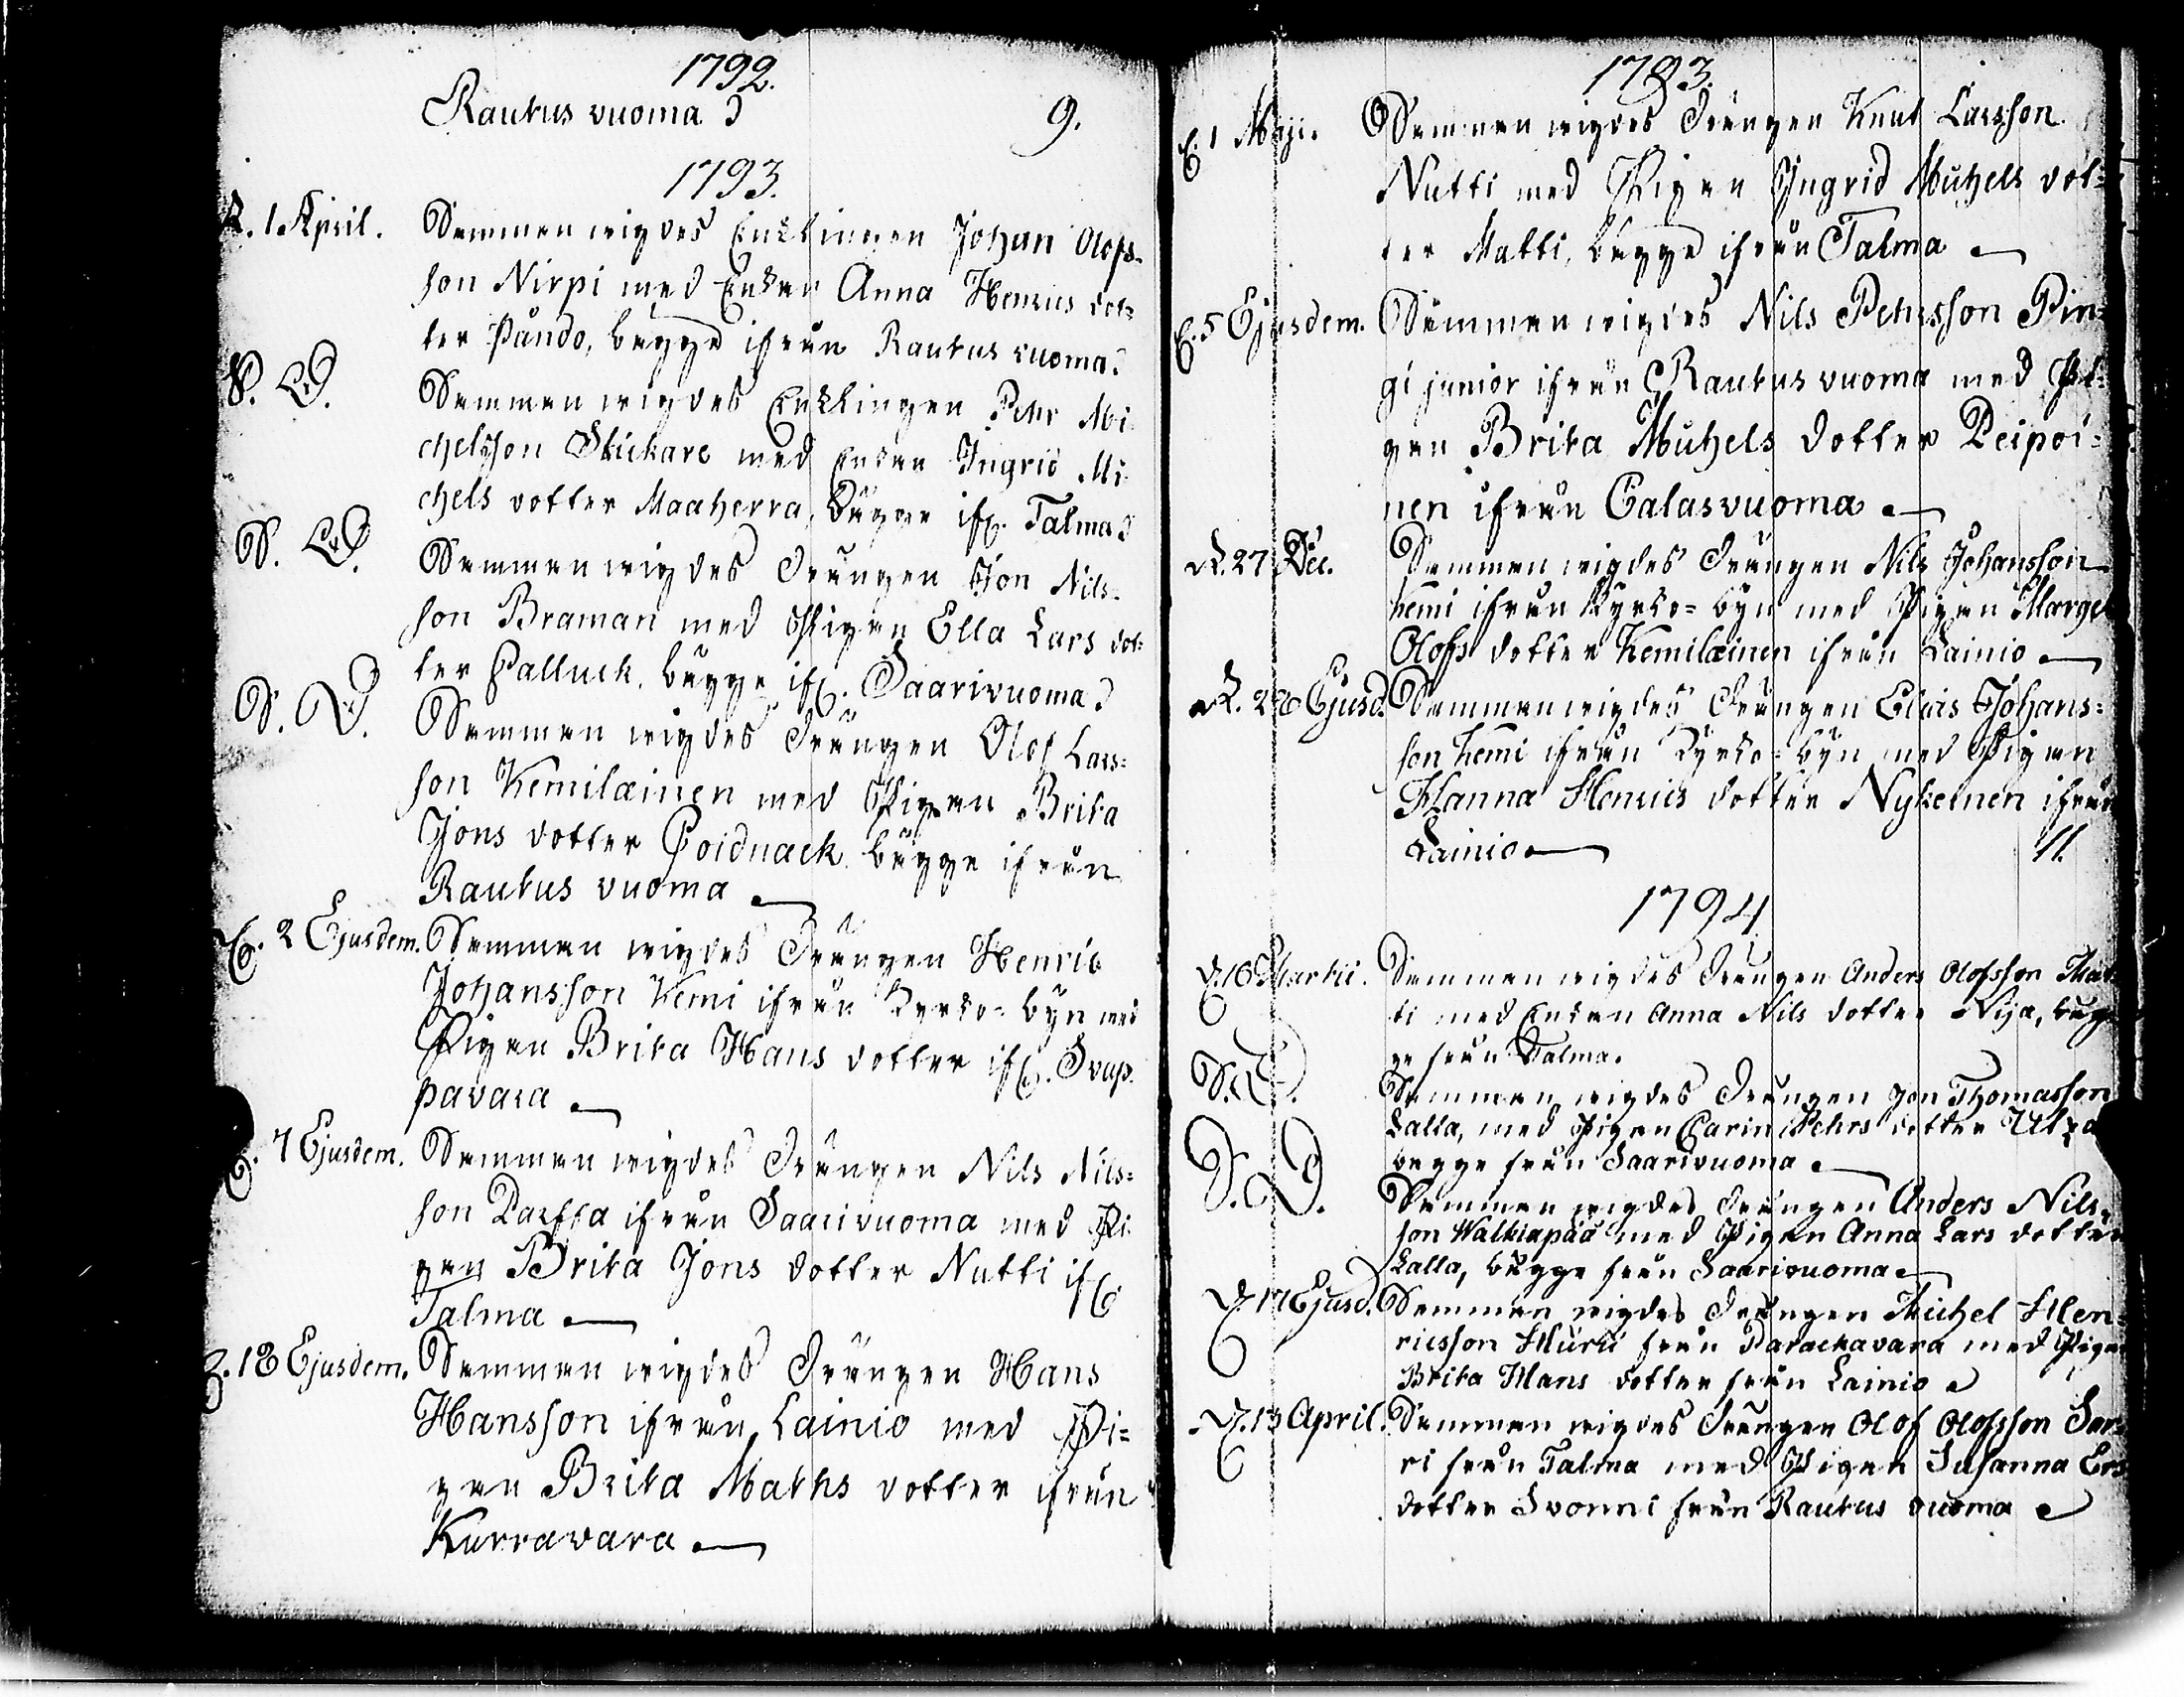 1792.
Rautus vuoma
9.
1793.
d. 1 April. Sammanvigdes Enklingen Johan Olofs-
son Nirpi med Enkan Anna Henrics dot-
ter Pándo, bägge ifrån Rautus vuoma.
S. D. Sammanvigdes Enklingen Pehr Mi
chelsson Skickare med Enkan Ingrid Mi
chels dotter Maaherra, bägge ifr. Talma
S. D. Sammanvigdes Drängen Jon Nils-
son Braman med Pigan Ella Lars dot-
ter Palluck, bägge ifr. Saarivuoma
S. D. Sammanvigdes Drängen Olof Lars-
son Kemilæinen med Pigan Brita
Jons dotter Coidnack bägge ifrån
Rautus vuoma
d. 2 Ejusdem. Sammanvigdes Drängen Henrik
Johansson Kemi ifrån Kyrko-byn med
Pigan Brita Hans dotter ifr. Svap
pavara
d. 7 Ejusdem. Sammanvigdes Drängen Nils Nils-
son Parffa ifrån Saarivuoma med Pi
gan Brita Jons dotter Nutti ifr
Talma
d. 18 Ejusdem. Sammanvigdes Drängen Hans
Hansson ifrån Lainio med Pi-
gan Brita Maths dotter ifrån
Kurravara
1793.
d. 1 Maji. Sammanvigdes Drängen Knut Larsson
Nutti med Pigan Ingrid Michels dot-
ter Matti, bägge ifrån Talma
d. 5 Ejusdem. Sammanvigdes Nils Pehrsson Pin-
gi junior ifrån Rautus vuoma med Pi-
gan Brita Michels dotter Peipoi-
nen ifrån Calasvuoma
d. 27 Dec. Sammanvigdes Drängen Nils Johansson
Kemi ifrån Kyrko-byn med Pigan Marget
Olofs dotter Kemilæinen ifrån Lainio
d. 28 Ejusd. Sammanvigdes Drängen Elias Johans-
son Kemi ifrån Kyrko-byn med Pigan
Hanna Henrics dotter Nykeinen ifrån
Lainio
11.
1794
d. 16 Martii. Sammanvigdes Drängen Anders Olofsson Mat
ti med Enkan Anna Nils dotter Nija, bäg
ge från Talma.
S. D. Sammanvigdes Drängen Jon Thomasson
Lalla, med Pigan Carin Pehrs dotter
bägge från Saarivuoma
S. D. Sammanvigdes Drängen Anders Nils-
son Walkiapää med Pigan Anna Lars dotter
Lalla, bägge från Saarivuoma
d. 17 Ejusd. Sammanvigdes Drängen Michel Hen-
ricsson från Parackavara med Pigan
Brita Hans dotter från Lainio
d. 13 April. Sammanvigdes Drängen Olof Olofsson Sar-
ri från Talma med Pigan Susanna Ers
dotter Svonni från Rautus vuoma